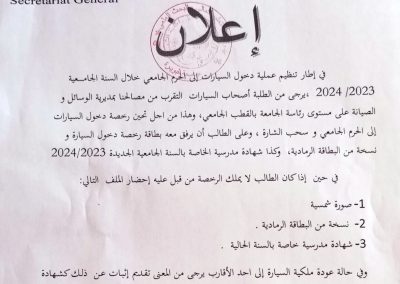 Secretariat General
إعلان
في إطار تنظيم عملية دخول السيارات إلى الحرم الجامعي خلال السنة الجامعية
2024/2023 ،يرجى من الطلبة أصحاب السيارات التقرب من مصالحنا بمديرية الوسائل و
الصيانة على مستوى رئاسة الجامعة بالقطب الجامعي، وهذا من اجل تحين رخصة دخول السيارات
إلى الحرم الجامعي و سحب الشارة ، وعلى الطالب أن يرفق معه بطاقة رخصة دخول السيارة و
نسخة من البطاقة الرمادية، وكذا شهادة مدرسية الخاصة بالسنة الجامعية الجديدة 2024/2023
في حين إذا كان الطالب لا يملك الرخصة من قبل عليه إحضار الملف التالي:
1- صورة شمسية
2- نسخة من البطاقة الرمادية .
3- شهادة مدرسية خاصة بالسنة الحالية .
وفي حالة عودة ملكية السيارة إلى احد الأقارب يرجى من المعني تقديم إثبات عن ذلك كشهادة